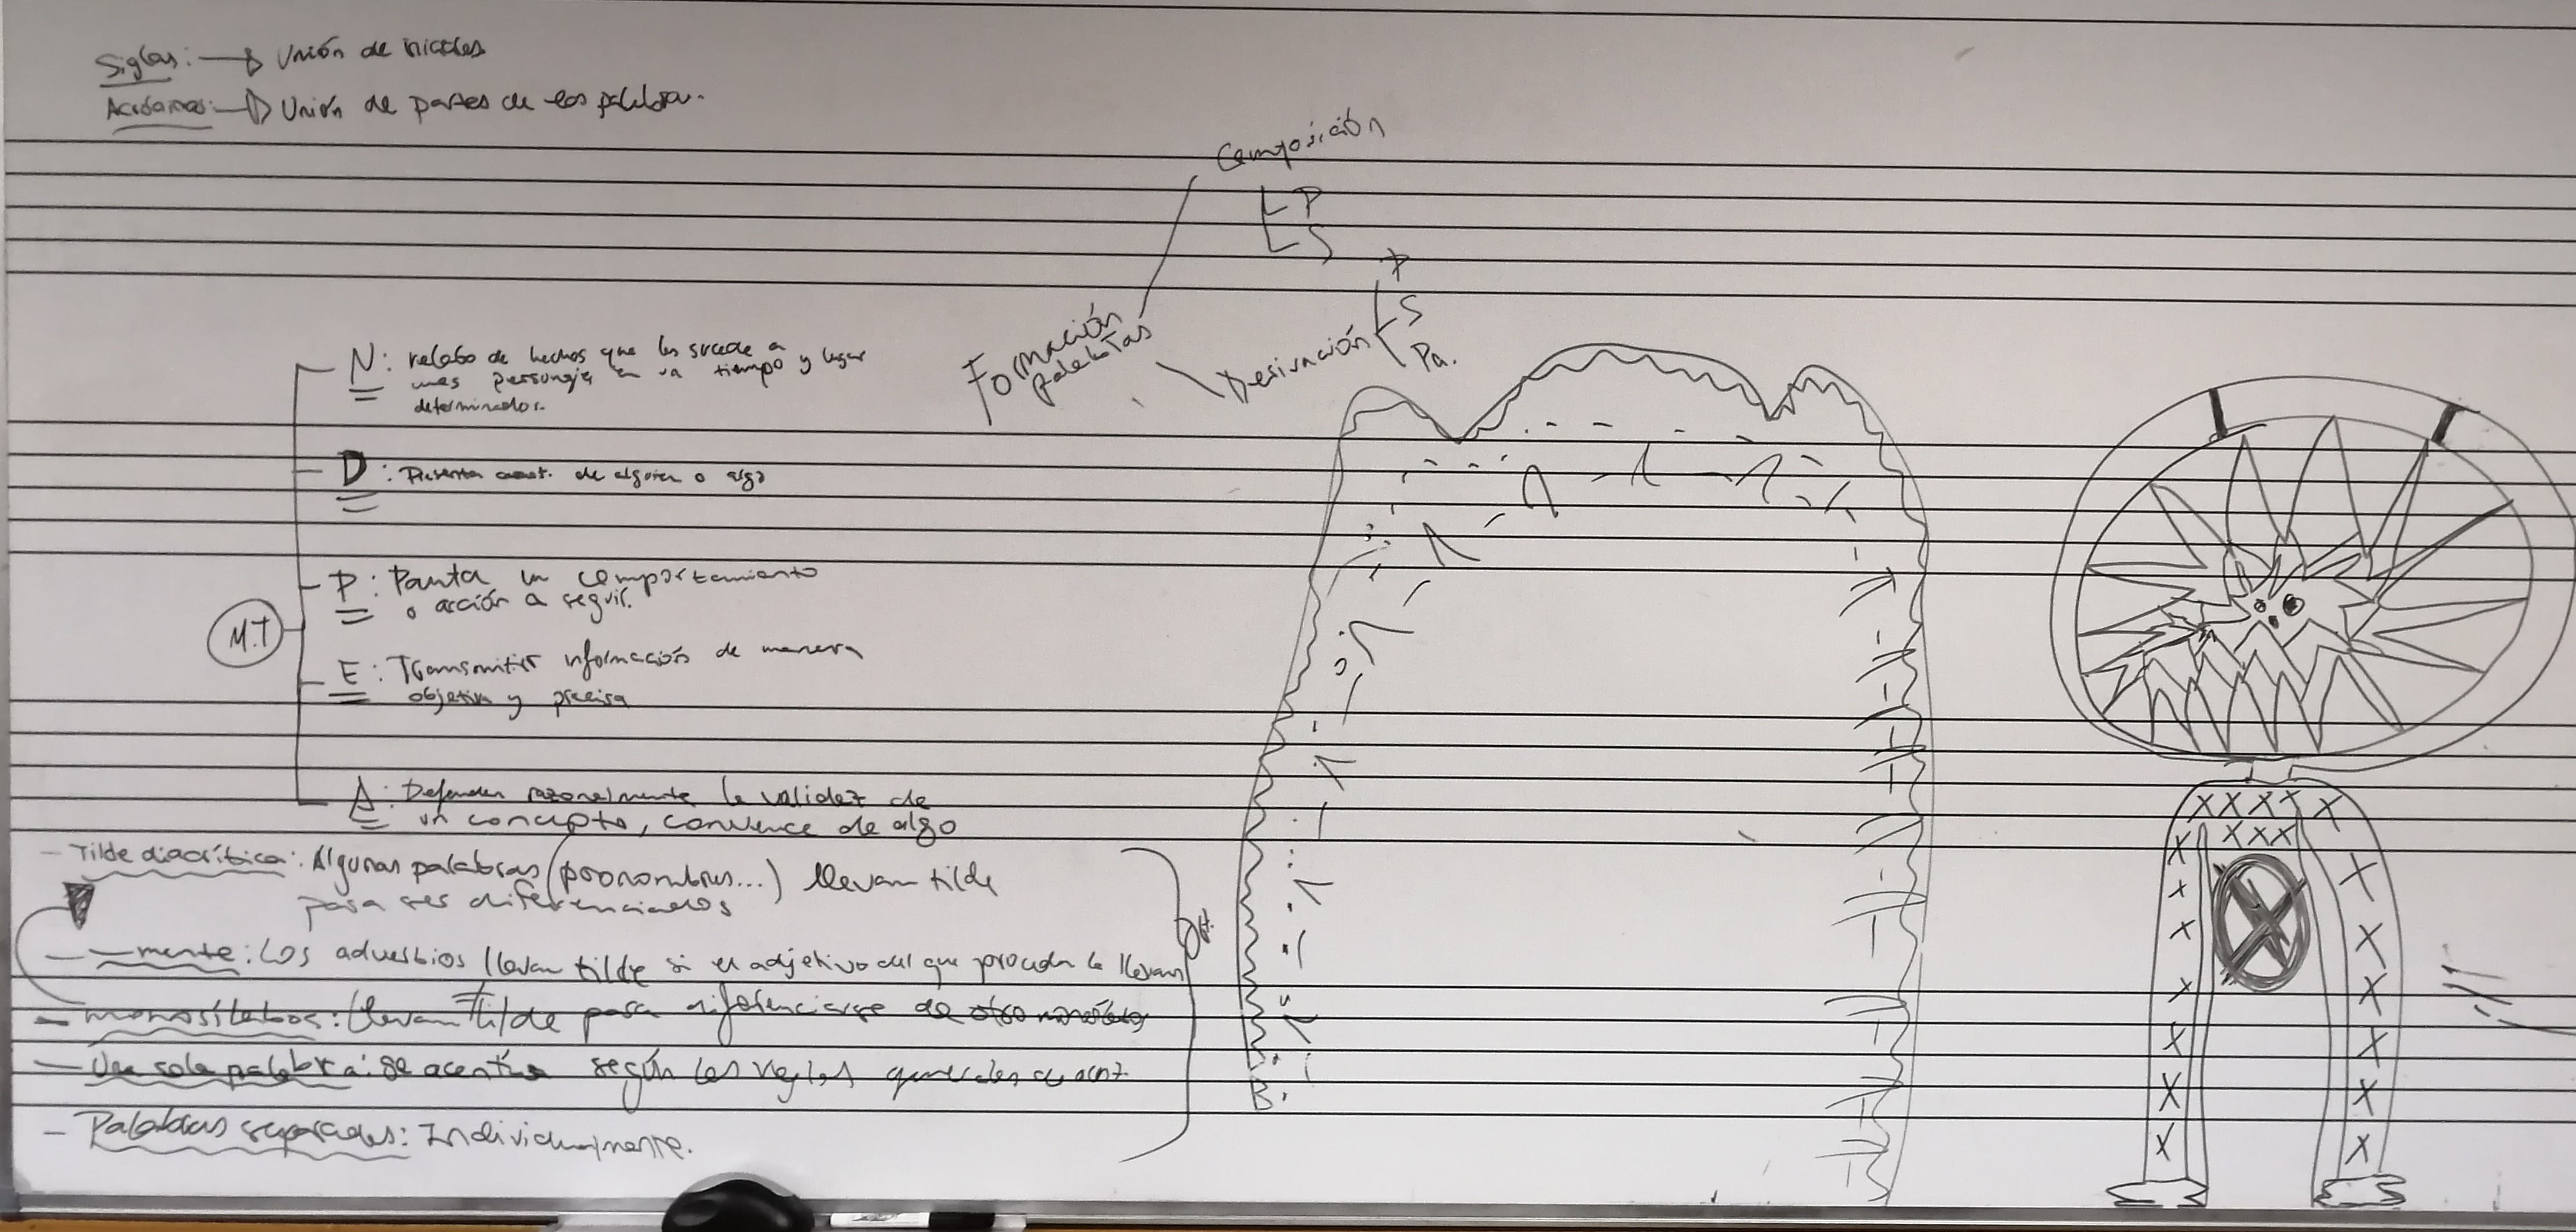 Siglas: → Unión de iniciales
Acrónimos: → Unión de partes de las palabras.
Composición
P
S
Formación
palabras
Derivación
P
S
Pa.
M.T
N: relato de hechos que les sucede a
unos personajes en un tiempo y lugar
determinados.
D: Presenta caract. de alguien o algo
P: Pauta un comportamiento
o acción a seguir.
E: Transmitir información de manera
objetiva y precisa
A: Defender razonalmente la validez de
un concepto, convence de algo
- Tilde diacrítica: Algunas palabras (pronombres...) llevan tilde
para ser diferenciados
- -mente: Los adverbios llevan tilde si el adjetivo del que proceden la llevan
- monosílabos: llevan tilde para diferenciarse de otro
- Una sola palabra: se acentúa según las reglas generales de acent.
- Palabras separadas: Individualmente.
B.